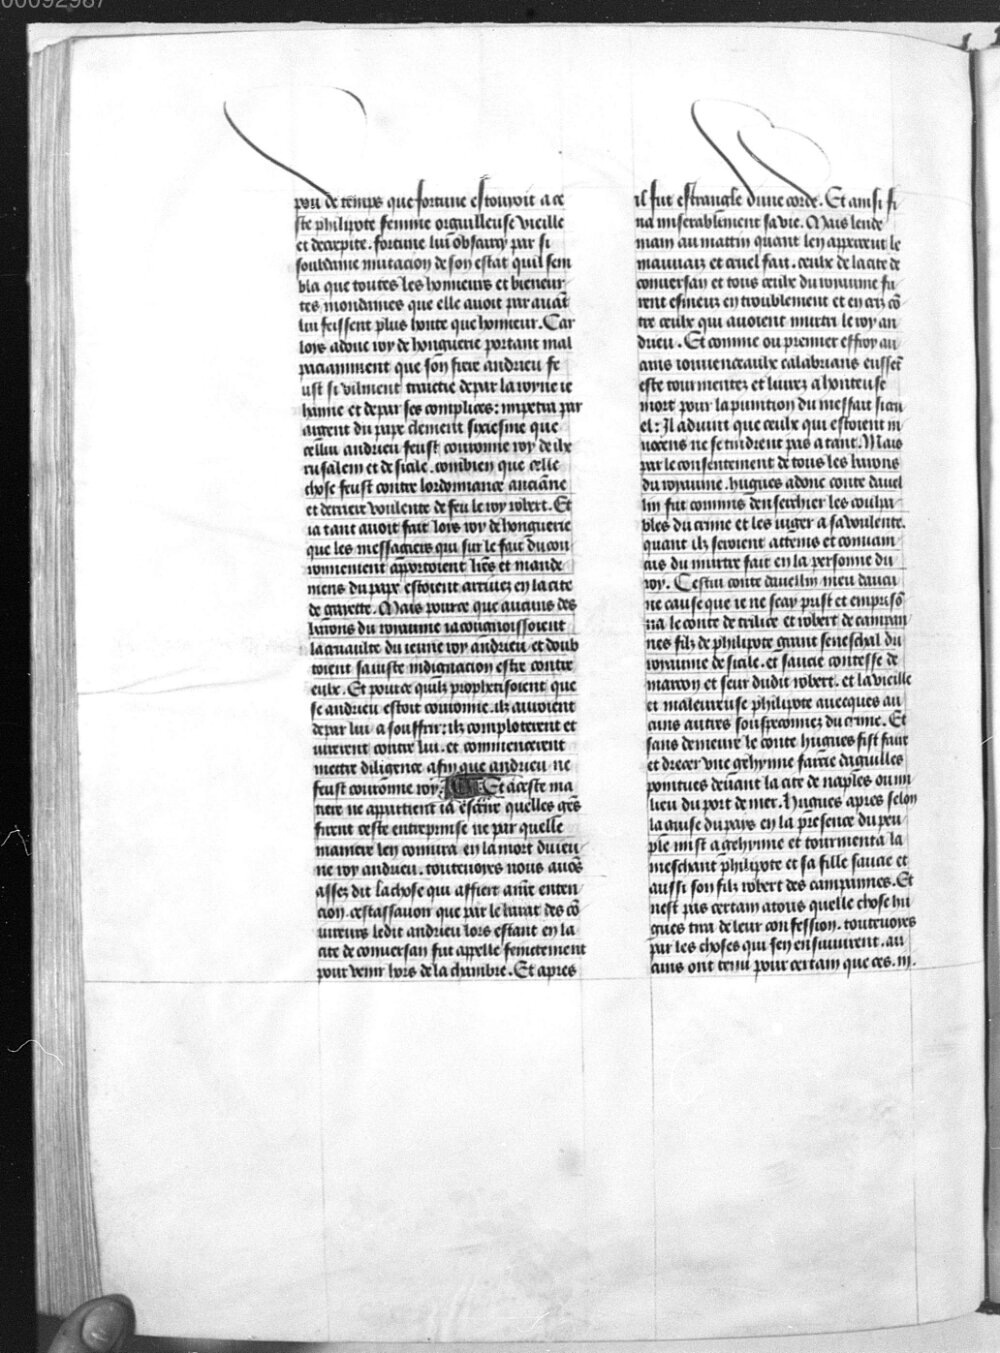 00092987
pou de temps que fortune estouyoit a ce
ste philipote femme orguilleuse vieille
et decrepite. fortune lui obscurcy par si
soubdaine mutacion de son estat quil sem
bla que toutes les honneurs et bieneur
tes mondaines que elle avoit par avāt
lui feissent plus honte que honneur. Car
loys adonc roy de honguerie portant mal
paciamment que son frere andrieu fe
ust si vilment traictie depar la royne ie
hanne et depar ses complices: impetra par
argent du pape clement sixiesme que
cellui andrieu feust couronne roy de ihe
rusalem et de sicile. combien que celle
chose feust contre lordonnance anciāne
et derriere voulente de feu le roy robert. Et
ia tant avoit fait loys roy de honguerie
que les messagiers qui sur le fait du cou
ronnement apportoient lr̄es et mande
mens du pape estoient arrivez en la cite
de gayette. Mais pource que aucuns des
barons du royaume ia cougnoissoient
la cruaulte du ieune roy andrieu et doub
toient sa iuste indignacion estre contre
eulx. Et pource quilz prophetisoient que
se andrieu estoit couronne. ilz auroient
depar lui a souffrir: ilz comploterent et
iurerent contre lui. et commencerent
mettre diligence afin que andrieu ne
feust couronne roy. Et aceste ma
niere ne appartient ia escrire quelles gēs
firent ceste entreprinse ne par quelle
maniere len coniura en la mort du ieu
ne roy andrieu. toutevoyes nous avōs
assez dit la chose qui affiert a nr̄e enten
cion. cestassavoir que par le barat des cō
iureurs ledit andrieu lors estant en la
cite de conversan fut appelle secretement
pour venir hors de la chambre. Et apres
il fut estrangle dune corde. Et ainsi fi
na miserablement sa vie. Mais lende
main au mattin quant len apperceut le
mauvaiz et cruel fait. ceulx de la cite de
conversan et tous ceulx du royaume fu
rent esmeuz en troublement et en criz cō
tre ceulx qui avoient murtri le roy an
drieu. Et comme ou premier effroy au
cuns iouvenceaulx calabrians eussēt
este tourmentez et livrez a honteuse
mort pour la punition du meffait si cru
el: Il advint que ceulx qui estoient in
nocens ne se tindrent pas a tant. Mais
par le consentement de tous les barons
du royaume. hugues adonc conte davel
lin fut commis densercher les coulpa
bles du crime et les iuger a sa voulente.
quant ilz seroient attains et convain
cus du murtre fait en la personne du
roy. Cestui conte davellin meu daucu
ne cause que ie ne scay prist et emprisō
na le conte de trilice et robert de campan
nes filz de philipote grant seneschal du
royaume de sicile. et sancie contesse de
marcon et seur dudit robert. et la vieille
et maleureuse philipote avecques au
cuns autres souspeconnez du crime. Et
sans demeure le conte hugues fist faire
et drecer une gehynne faicte daguilles
pointues devant la cite de naples ou mi
lieu du port de mer. Hugues apres selon
la guise du pays en la presence du peu
ple mist a gehynne et tourmenta la
meschant philipote et sa fille sancie et
aussi son filz robert des campannes. Et
nest pas certain a tous quelle chose hu
gues tira de leur confession. toutevoyes
par les choses qui sen ensuivirent. au
cuns ont tenu pour certain que ces. iii.